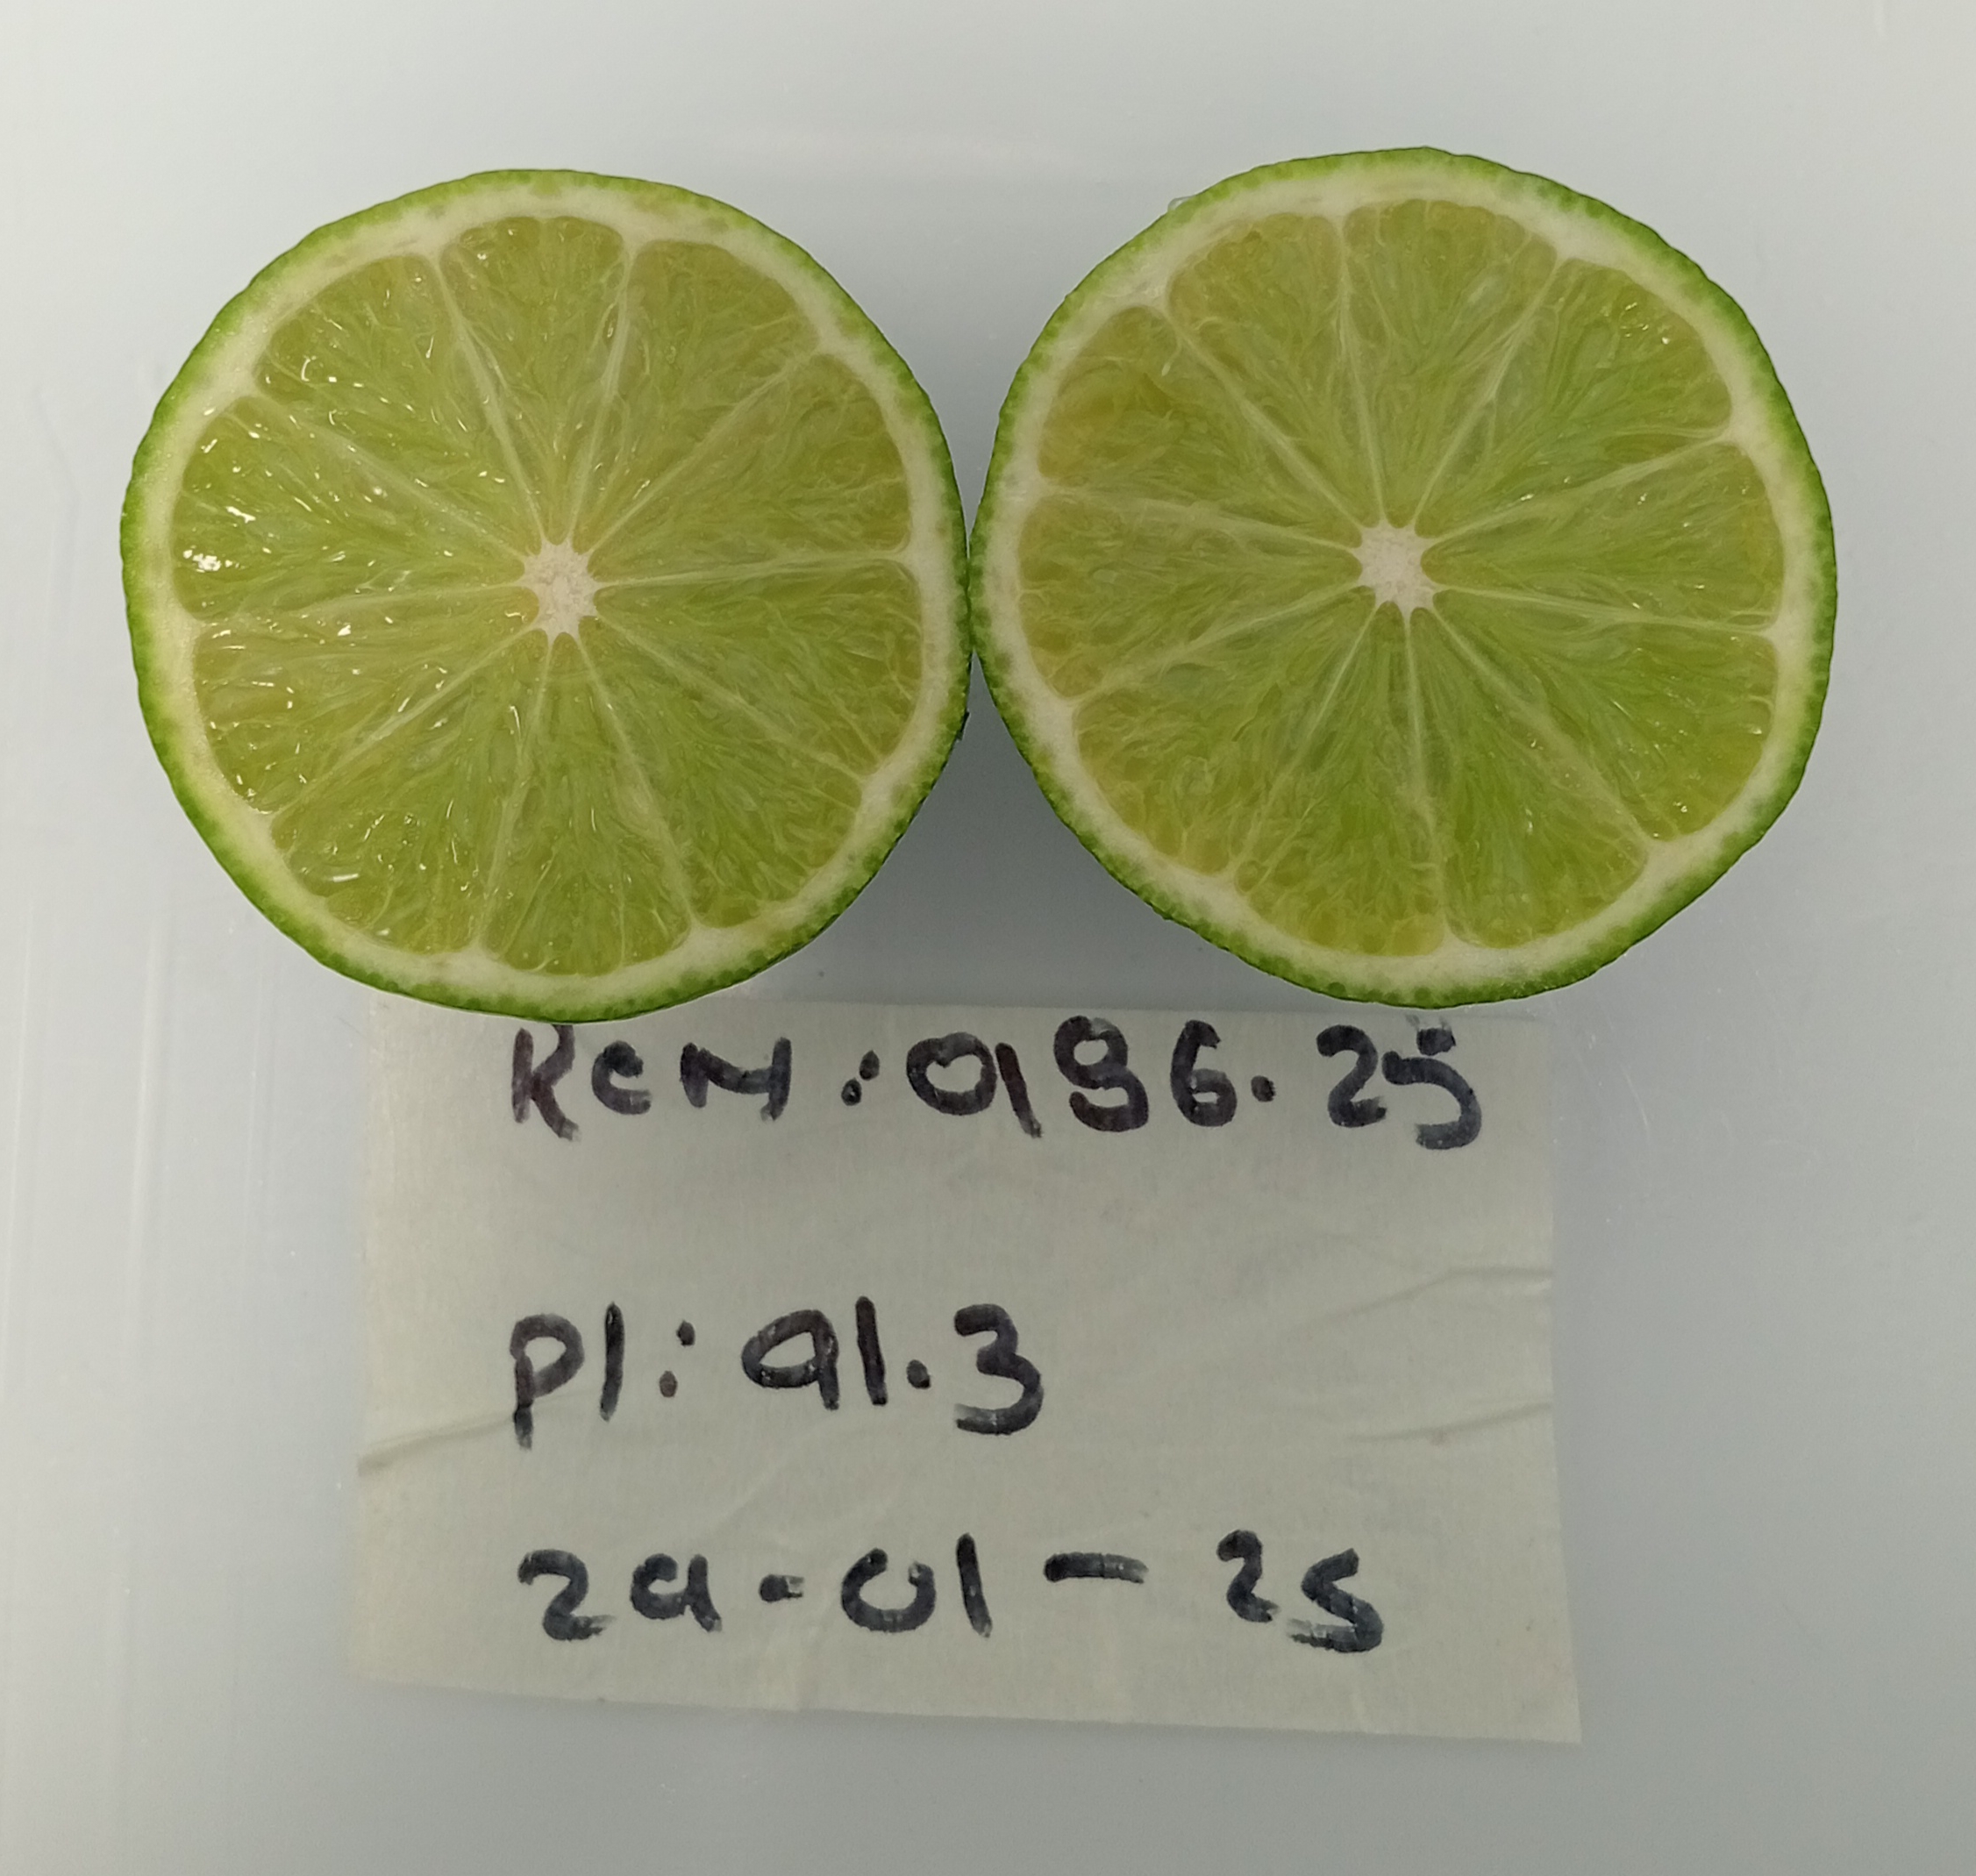 RCN: 0196.25
Pl: 91.3
29-01-25